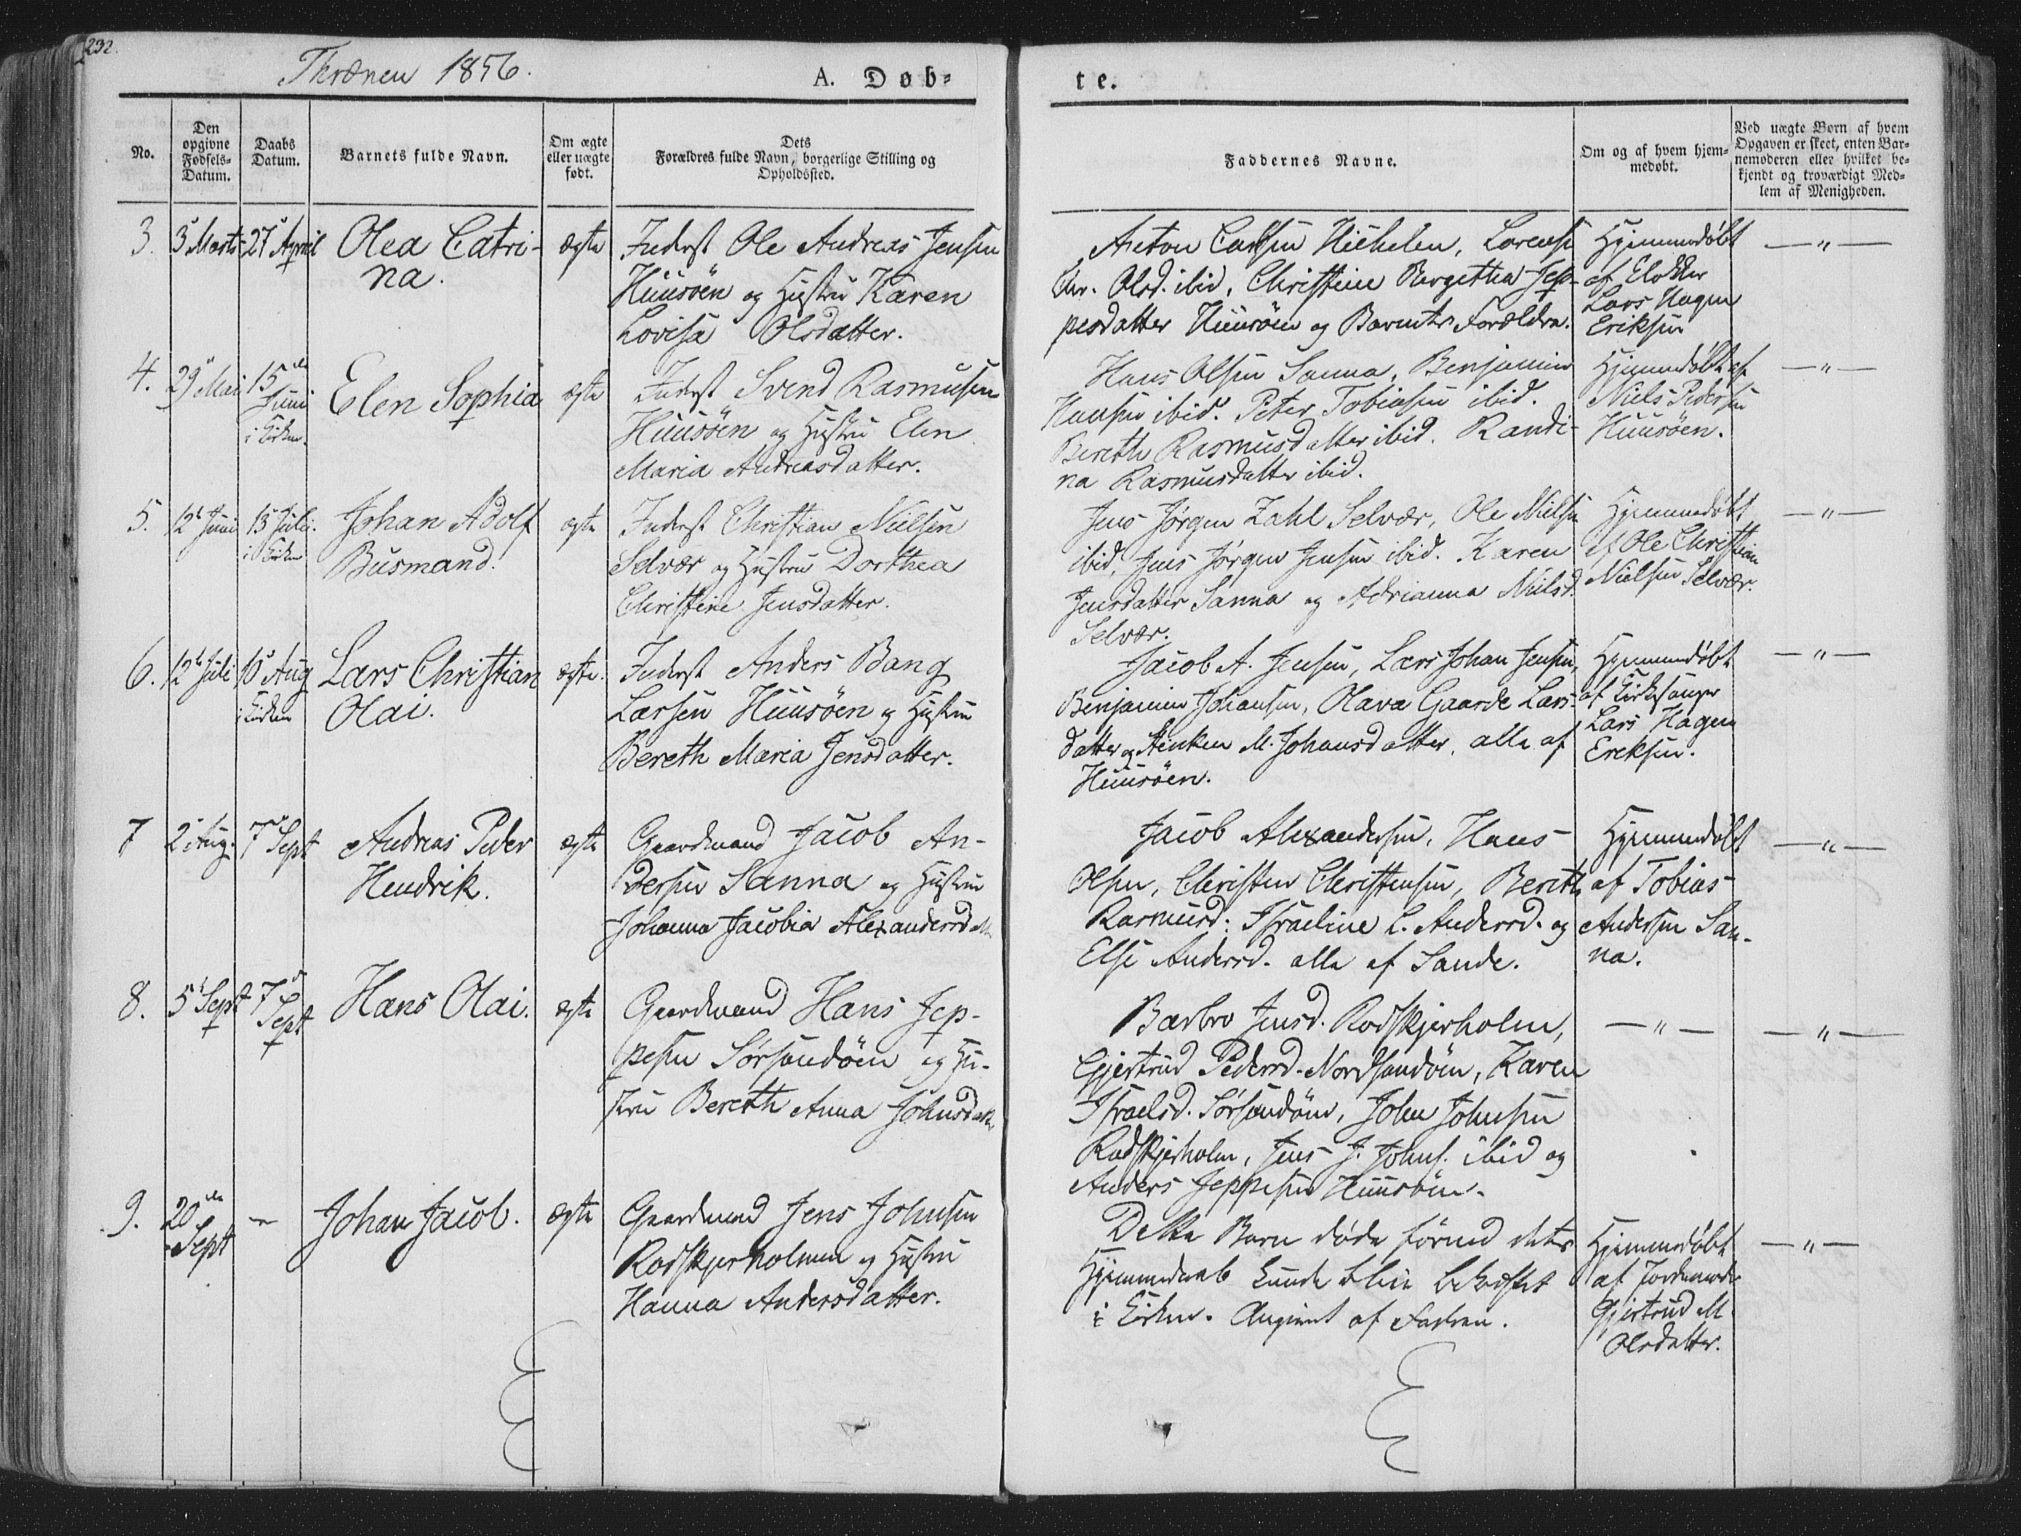 232.
Thrænen 1856.
A. Døb-
te.
No.
Den
opgivne
Fødsels-
Datum.
Daabs
Datum.
Barnets fulde Navn.
Om ægte
eller uægte
født.
Dets
Forældres fulde Navn, borgerlige Stilling og
Opholdssted.
Faddernes Navne.
Om og af hvem hjem-
medøbt.
Ved uægte Børn af hvem
Opgaven er skeet, enten Bar-
nemoderen eller hvilket be-
kjendt og troværdigt Med-
lem af Menigheden.
3.
3 Marts
27 April
Olea Catri-
na.
ægte
Inderst Ole Andreas Jensen
Huusöen og Hustru Karen
Lovisa Olsdatter.
Anton Carlsen Lorense
Chr. Olsd. ibid, Christine Bergitha Jep-
pesdatter Huusöen og Barnets Forældre.
Hjemmedøbt
af Klokker
Lars Hagen
Eriksen
— " —
4.
29 Mai
15de
Juni
i Kirken
Elen Sophia
ægte
Inderst Svend Rasmusen
Huusöen og Hustru Elen
Maria Andreasdatter.
Hans Olsen Sanna, Benjamin
Hansen ibid. Peter Tobiasen ibid.
Bereth Rasmusdatter ibid. Randi-
na Rasmusdatter ibid.
Hjemmedøbt af
Niels Pedersen
Huusöen.
— " —
5.
12 Juni
13 Juli
i Kirken
Johan Adolf
Busmand.
ægte
Inderst Christian Nielsen
Selvær og Hustru Dorthea
Christine Jensdatter.
Jens Jørgen Zahl Selvær, Ole Nielsen
ibid, Jens Jørgen Jensen ibid. Karen
Jensdatter Sanna og Adrianna Nielsd.
Selvær.
Hjemmedøbt
af Ole Christian
Nielsen Selvær.
— " —
6.
12 Juli
10 Aug
i Kirken
Lars Christian
Olai.
ægte.
Inderst Anders Bang
Larsen Huusöen og Hustru
Bereth Maria Jensdatter.
Jacob A. Jensen, Lars Johan Jensen,
Benjamin Johansen, Olava Gaarde Lars-
datter og Anken M. Johansdatter, alle af
Huusöen.
Hjemmedøbt
af Kirkesanger
Lars Hagen
Eriksen.
— " —
7
2 Aug.
7 Sept
Andreas Peder
Hendrik.
ægte
Gaardmand Jacob An-
dersen Sanna og Hustru
Johanna Jacobia Alexandersd
Jacob Alexandersen, Hans
Olsen, Christen Christensen, Bereth
Rasmusd: Israeline L. Andersd. og
Else Andersd. alle af Sande.
Hjemmedøbt
af Tobias
Andersen San-
na.
— " —
8.
5 Sept
7
Sept
Hans Olai.
ægte
Gaardmand Hans Jep-
pesen Sörsandöen og Hu-
stru Bereth Anna Johnsdatter
Barbro Jensd. Rodskjerholm,
Gjertrud Pedersd. Nordsandöen, Karen
Israelsd. Sörsandöen, John Johnsen
Rodskjerholm, Jens J. Johns. ibid og
Anders Jeppesen Huusöen.
— " —
— " —
9.
20de
Sept
—
Johan Jacob.
ægte
Gaardmand Jens Johnsen
Rodskjerholmen og Hustru
Hanna Andersdatter.
Dette Barn døde førend dets
Hjemmedaab kunde blive bekræftet
i Kirken. Angivet af Faderen.
Hjemmedøbt
af Jordemoder
Gjertrud M.
Olsdatter.
— " —